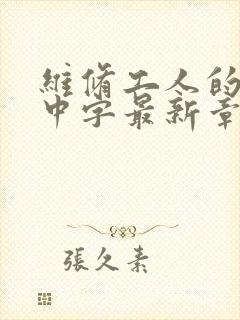 維脩工人的
中字最新章
張久素